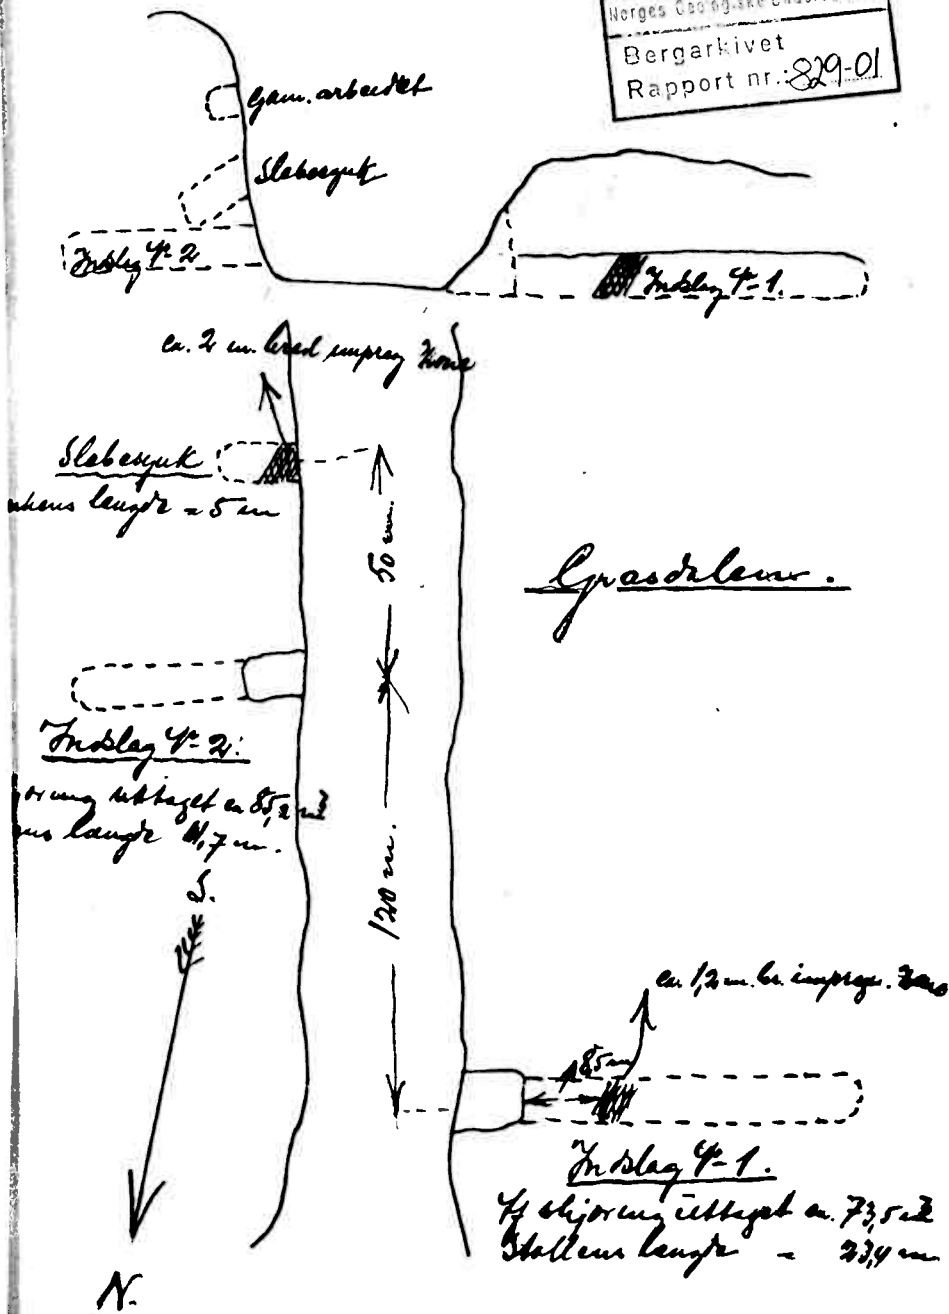 Norges Geologiske
Bergarkivet
Rapport nr.: 829-01
Gam. arbeidet
Indslag № 2
Indslag № 1.
ca. 2 m. bred impreg Zone
længde = 5 m
50 m.
Grasdalen.
Indslag № 2:
uttaget ca 85,2 m³
længde 11,7 m.
S.
120 m.
ca. 1,2 m. br. impregn. Zone
8,5 m
Indslag № 1.
skjæring uttaget ca. 73,5 m³
Stollens længde = 23,4 m
N.